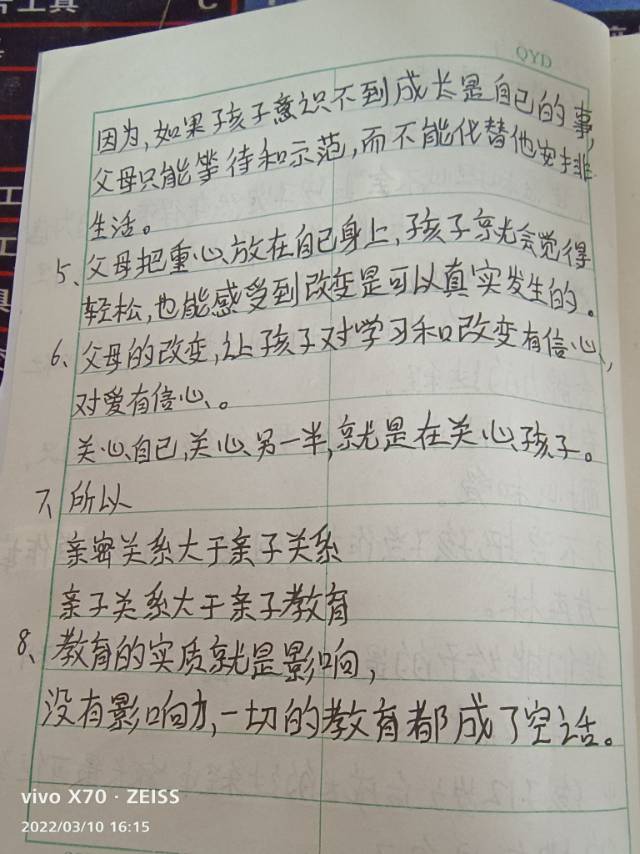 工具
QYD
因为,如果孩子意识不到成长是自己的事,
父母只能等待和示范,而不能代替他安排
生活。
5、父母把重心放在自己身上,孩子就会觉得
轻松,也能感受到改变是可以真实发生的。
6、父母的改变,让孩子对学习和改变有信心,
对爱有信心。
关心自己,关心另一半,就是在关心孩子。
7、所以
亲密关系大于亲子关系
亲子关系大于亲子教育
8、教育的实质就是影响,
没有影响力,一切的教育都成了空话。
vivo X70 · ZEISS
2022/03/10 16:15